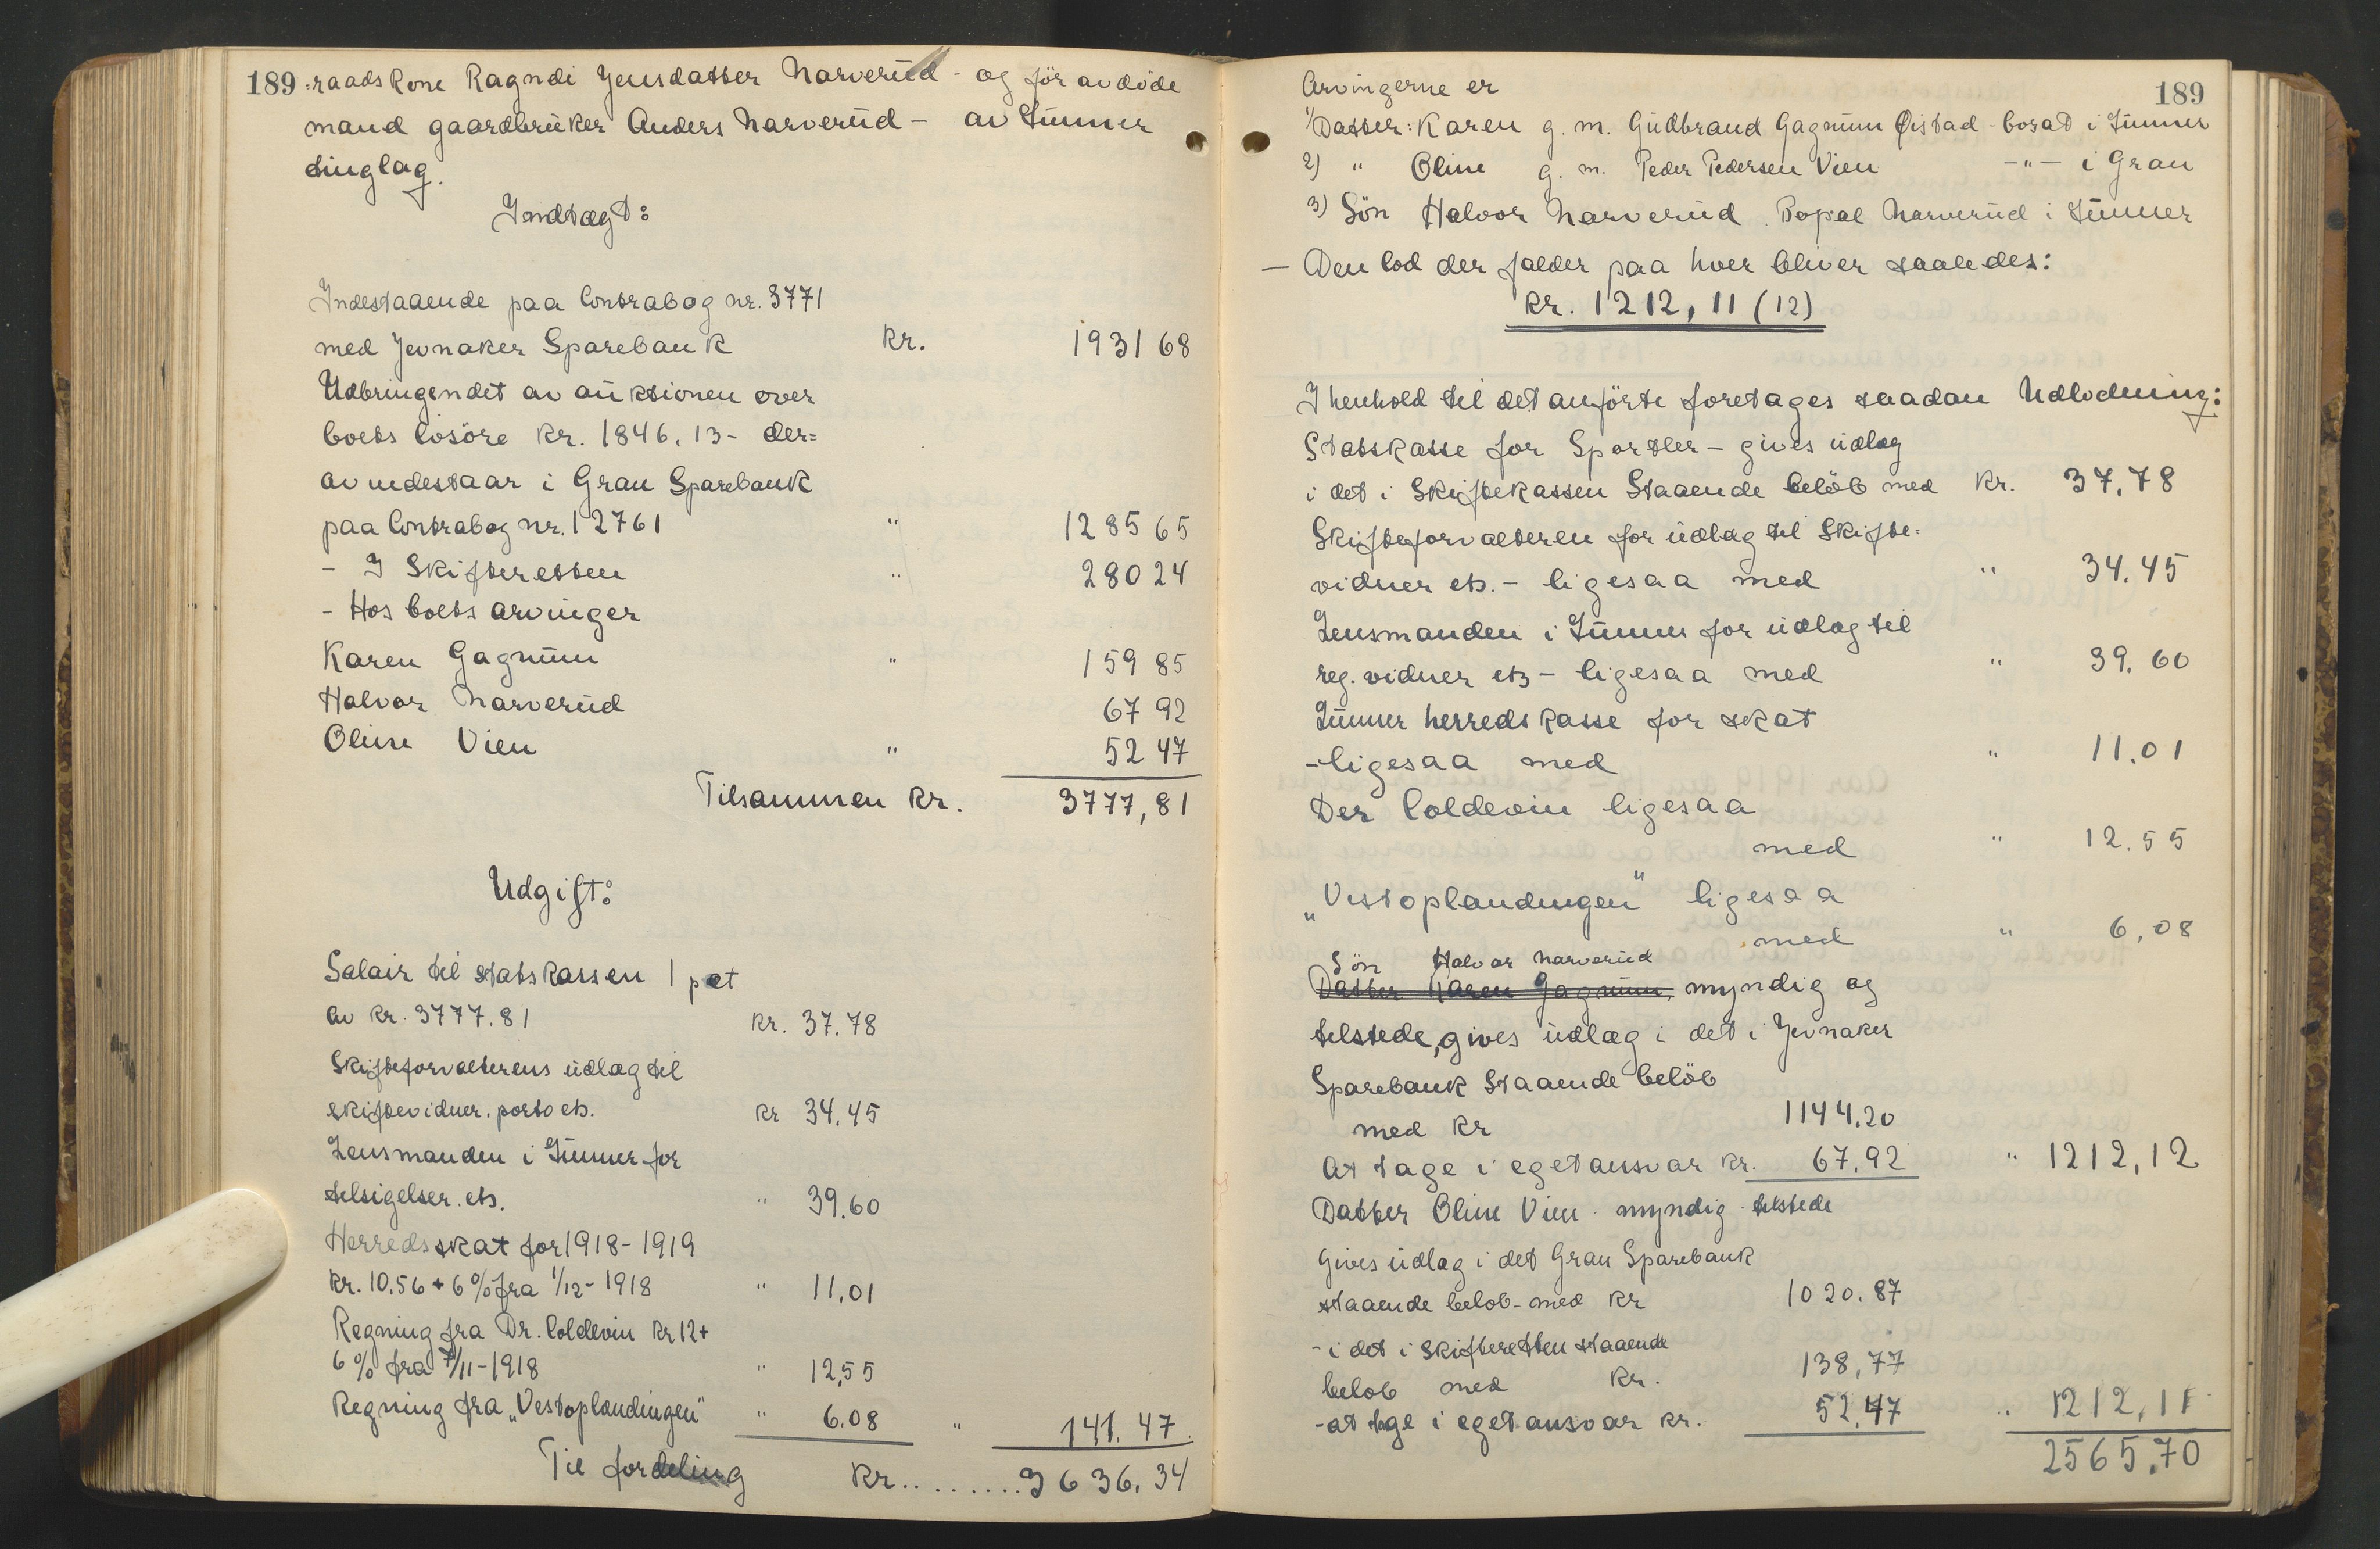 189 :raadskone Ragndi Jensdatter Narverud - og för avdöde
mand gaardbruker Anders Narverud - av Lunner
tinglag.
Indtægt:
Indestaaende paa Contrabog nr. 3771
med Jevnaker Sparebank kr. 1931 68
Udbringendet av auktionen over
boets lösöre kr. 1846,13- der=
av indestaar i Gran Sparebank
paa Contrabog nr. 12761 " 1285 65
- I Skifteretten " 280 24
- Hos boets arvinger
Karen Gagnum " 159 85
Halvor Narverud 67 92
Oline Vien " 52 47
Tilsammen kr. 3777,81
Udgift:
Salair til statskassen 1 pct
av kr. 3777.81 kr. 37.78
Skifteforvalterens udlag til
skiftevidner, porto etc. kr 34.45
Lensmanden i Lunner for
tilsigelser etc. " 39.60
Herredsskat for 1918-1919
kr. 10.56 + 6% fra 1/12-1918 " 11,01
Regning fra Dr. Coldevin kr 12 +
6% fra 7/11-1918 " 12,55
Regning fra „Vestoplandingen" " 6.08 " 141.47.
Til fordeling kr.........3636.34
Arvingerne er 189
1) Datter: Karen g. m. Gudbrand Gagnum Öistad - bosat i Lunner
2) " Oline g. m. Peder Pedersen Vien -"- i Gran
3) Sön Halvor Narverud. Bopæl Narverud i Lunner
- Den lod der falder paa hver bliver saaledes:
kr. 1212,11 (12)
I henhold til det anförte foretages saadan Udlodning:
Statskasse for Sportler - gives udlæg
i det i Skiftekassen Staaende belöb med kr. 37.78
Skifteforvalteren for udlæg til Skifte-
vidner etc. - ligesaa med " 34.45
Lensmanden i Lunner for udlæg til
reg. vidner etc - ligesaa med " 39.60
Lunner herredskasse for skat
- ligesaa med " 11.01
Der Coldevin ligesaa
med " 12.55
„Vestoplandingen" ligesaa
med " 6,08
Sön Halvor Narverud
Datter Karen Gagnum, myndig og
tilstede, gives udlæg i det i Jevnaker
Sparebank Staaende belöb
med kr 1144.20
At tage i eget ansvar kr. 67.92 " 1212,12
Datter Oline Vien - myndig - tilstede
gives udlæg i det Gran Sparebank
staaende belob - med kr 1020.87
- i det i skifteretten staaende
belob med kr. 138,77
- at tage i eget ansvar kr. 52.47 " 1212,11
2565.70